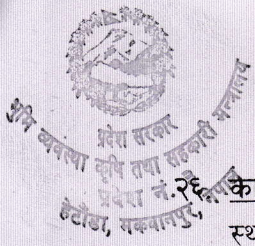 प्रदेश सरकार
भूमि व्यवस्था कृषि तथा सहकारी मन्त्रालय
प्रदेश नं.
हेटौंडा, मकवानपुर, नेपाल
२६.